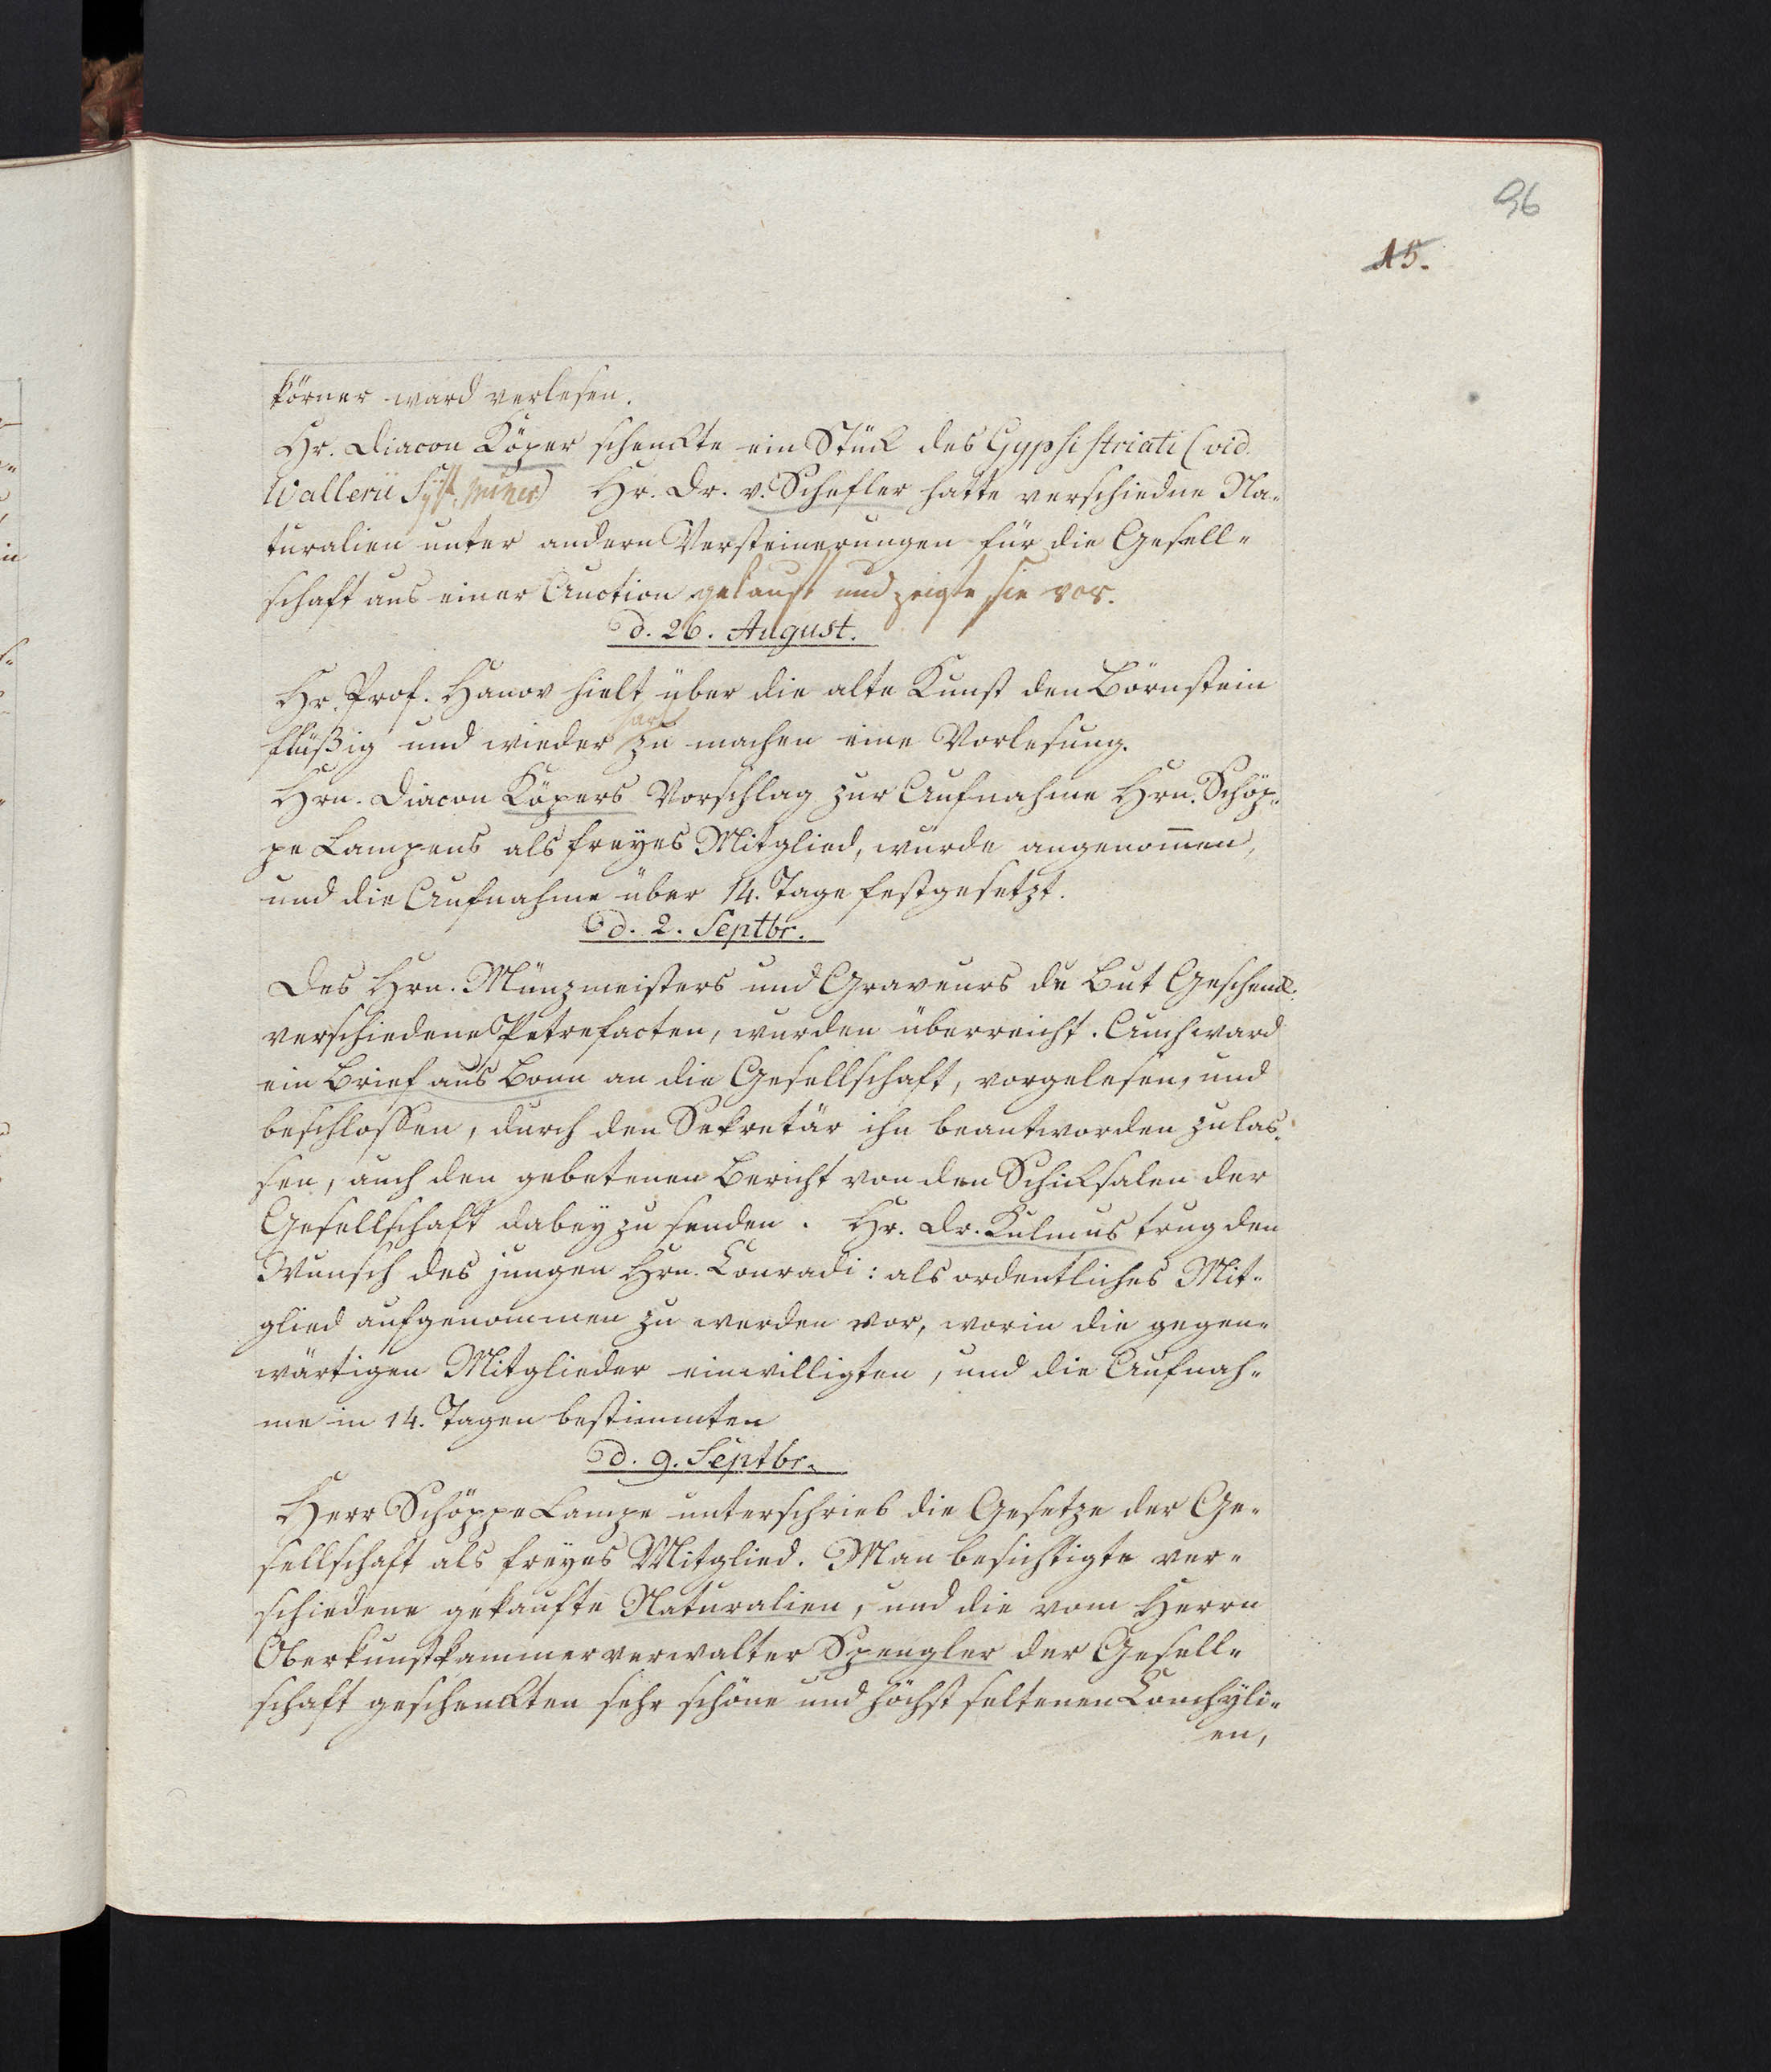 96
15.
körner ward verlesen.
Hr. Diacon Köper schenkte ein Stük des Gypsi striati (vid.
Wallerii Syst. miner.) Hr. Dr. v. Schefler hatte verschiedne Na-
turalien unter andern Versteinerungen für die Gesell-
schaft aus einer Auction gekauft und zeigte sie vor.
d. 26. August.
Hr. Prof. Hanov hielt über die alte Kunst den Börnstein
hart
flüßig und wieder zu machen eine Vorlesung.
Hrn. Diacon Köpers Vorschlag zur Aufnahme Hrn. Schöp-
pe Lampens als freyes Mitglied, wurde angenom̄en,
und die Aufnahme über 14. Tage festgesetzt.
d. 2. Septbr.
Des Hrn. Münzmeisters und Graveurs du But Geschenk:
verschiedene Petrefacten, wurden überreicht. Auch ward
ein Brief aus Bonn an die Gesellschaft, vorgelesen, und
beschlossen, durch den Sekretär ihn beantworden zu las-
sen, auch den gebetenen Bericht von den Schiksalen der
Gesellschaft dabey zu senden. Hr. Dr. Kulmus trug den
Wunsch des jungen Hrn. Conradi: als ordentliches Mit-
glied aufgenommen zu werden vor, worin die gegen-
wärtigen Mitglieder einwilligten, und die Aufnah-
me in 14. Tagen bestimmten
d. 9. Septbr.
Herr Schöppe Lampe unterschrieb die Gesetze der Ge-
sellschaft als freyes Mitglied. Man besichtigte ver-
schiedene gekaufte Naturalien, und die vom Herrn
Oberkunstkammerverwalter Spengler der Gesell-
schaft geschenkten sehr schöne und höchst seltenen Conchyli-
en,